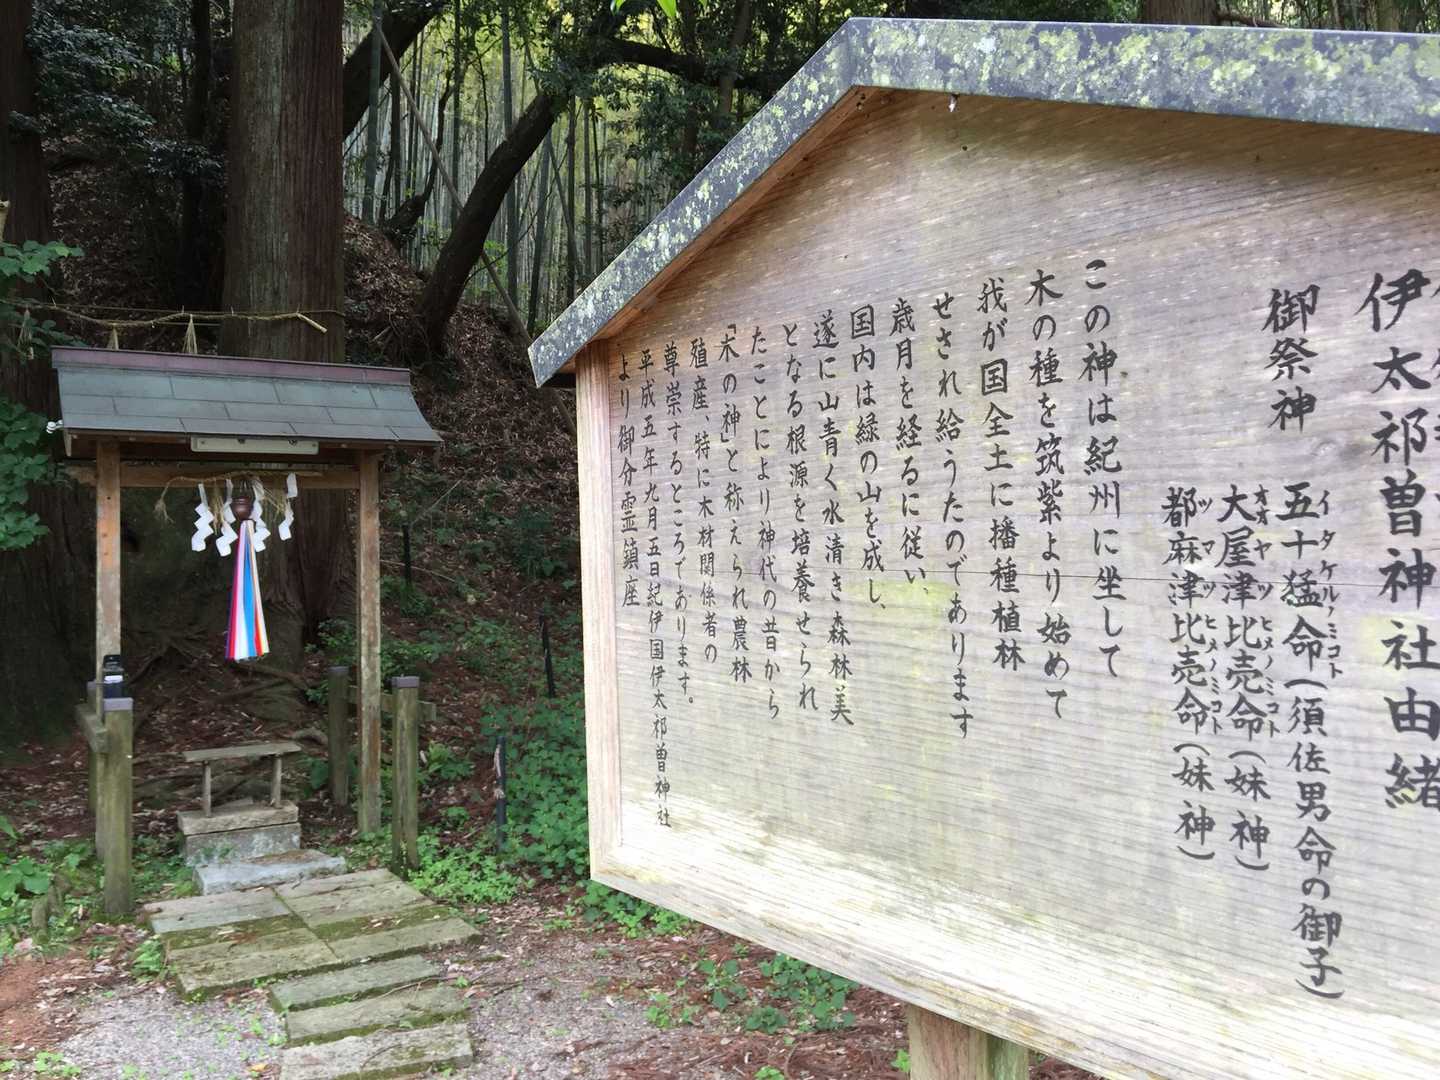 伊太祁曽神社由緒
御祭神
五十猛命(須佐男命の御子)
イタケルノミコト
大屋津比売命(妹神)
オオヤツヒメノミコト
都麻津比売命(妹神)
ツマツヒメノミコト
この神は紀州に坐して
木の種を筑紫より始めて
我が国全土に播種植林
せされ給うたのであります
歳月を経るに従い、
国内は緑の山を成し、
遂に山青く水清き森林美
となる根源を培養せられ
たことにより神代の昔から
「木の神」と称えられ農林
殖産、特に木材関係者の
尊崇するところであります。
平成五年九月五日紀伊国伊太祁曽神社
より御分霊鎮座